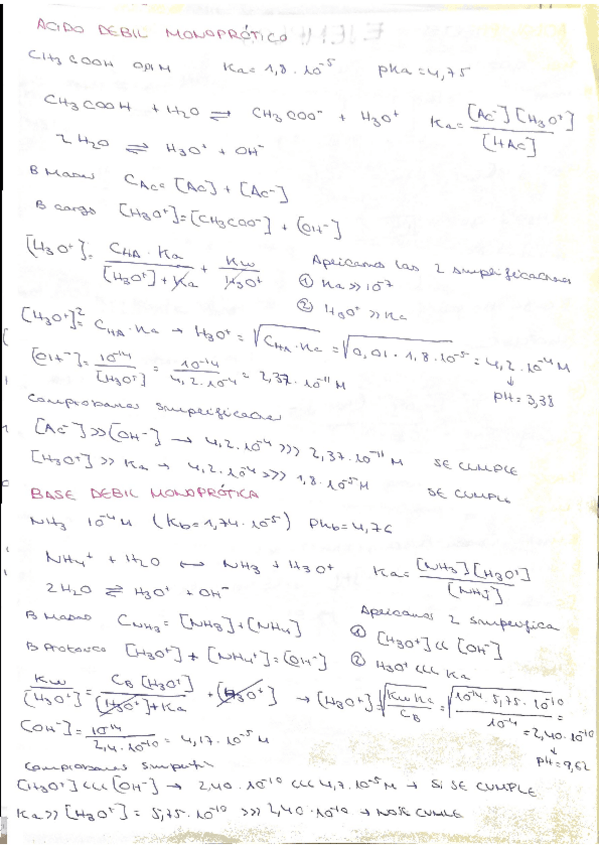 ACIDO DEBIL MONOPRÓTICO
CH3COOH 0,01M Ka = 1,8 · 10^-5 pKa = 4,75
CH3COOH + H2O ⇌ CH3COO^- + H3O^+ Ka = [Ac^-][H3O^+] / [HAc]
2H2O ⇌ H3O^+ + OH^-
B Masas CAc = [Ac] + [Ac^-]
B cargas [H3O^+] = [CH3COO^-] + [OH^-]
[H3O^+] = CHA · Ka / [H3O^+] + Ka + Kw / H3O^+ Aplicamos las 2 simplificaciones
① Ka >> 10^-7
② H3O^+ >> Ka
[H3O^+]^2 = CHA · Ka → H3O^+ = √CHA · Ka = √0,01 · 1,8 · 10^-5 = 4,2 · 10^-4 M
↓
pH = 3,38
[OH^-] = 10^-14 / [H3O^+] = 10^-14 / 4,2 · 10^-4 = 2,37 · 10^-11 M
Comprobamos simplificaciones
[Ac^-] >> [OH^-] → 4,2 · 10^-4 >>> 2,37 · 10^-11 M SE CUMPLE
[H3O^+] >> Ka → 4,2 · 10^-4 >>> 1,8 · 10^-5 M SE CUMPLE
BASE DEBIL MONOPRÓTICA
NH3 10^-4 M (Kb = 1,74 · 10^-5) pKb = 4,76
NH4^+ + H2O ↔ NH3 + H3O^+ Ka = [NH3][H3O^+] / [NH4]
2H2O ⇌ H3O^+ + OH^-
B Masas CNH3 = [NH3] + [NH4] Aplicamos 2 simplifica
① [H3O^+] << [OH^-]
B Protonico [H3O^+] + [NH4^+] = [OH^-] ② H3O^+ <<< Ka
Kw / [H3O^+] = CB [H3O^+] / [H3O^+] + Ka + [H3O^+] → [H3O^+] = √Kw Ka / CB = √10^-14 · 5,75 · 10^-10 / 10^-4 =
= 2,40 · 10^-10
↓
pH = 9,62
[OH^-] = 10^-14 / 2,4 · 10^-10 = 4,17 · 10^-5 M
Comprobamos
[H3O^+] <<< [OH^-] → 2,40 · 10^-10 <<< 4,7 · 10^-5 M → SI SE CUMPLE
Ka >> [H3O^+] = 5,75 · 10^-10 >>> 2,40 · 10^-10 → NO SE CUMLE